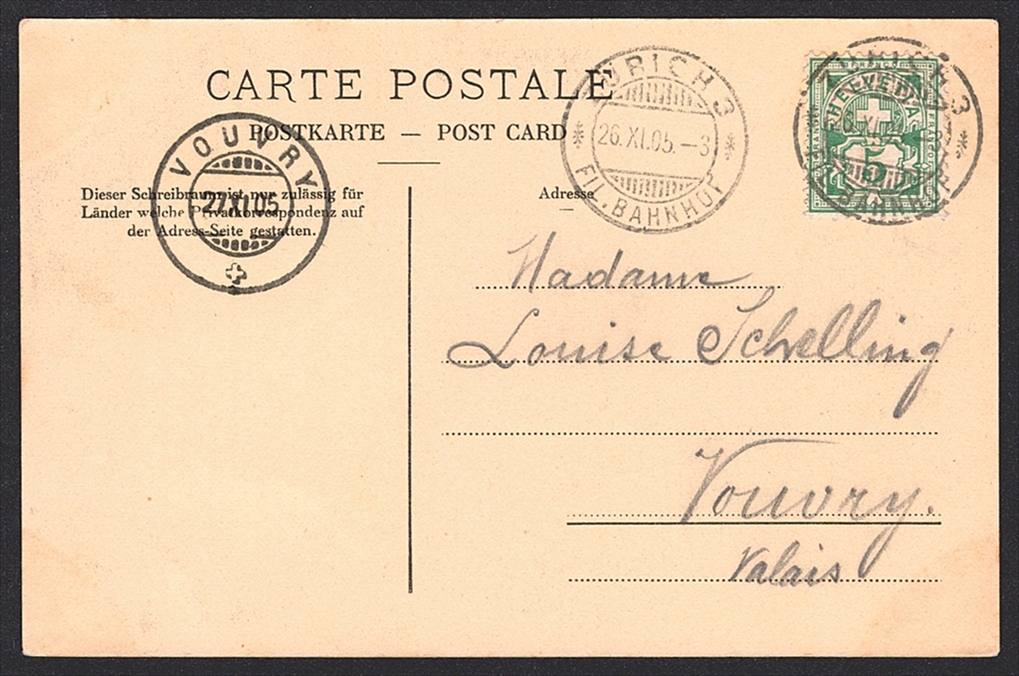 CARTE POSTALE
POSTKARTE — POST CARD
Dieser Schreibraum ist nur zulässig für
Länder welche Privatkorrespondenz auf
der Adress-Seite gestatten.
VOUVRY
27.XI.05.
ZÜRICH 3
26.XI.05.–3
FIL. BAHNHOF
HELVETIA
5
Adresse
Madame
Louise Schelling
Vouvry.
Valais